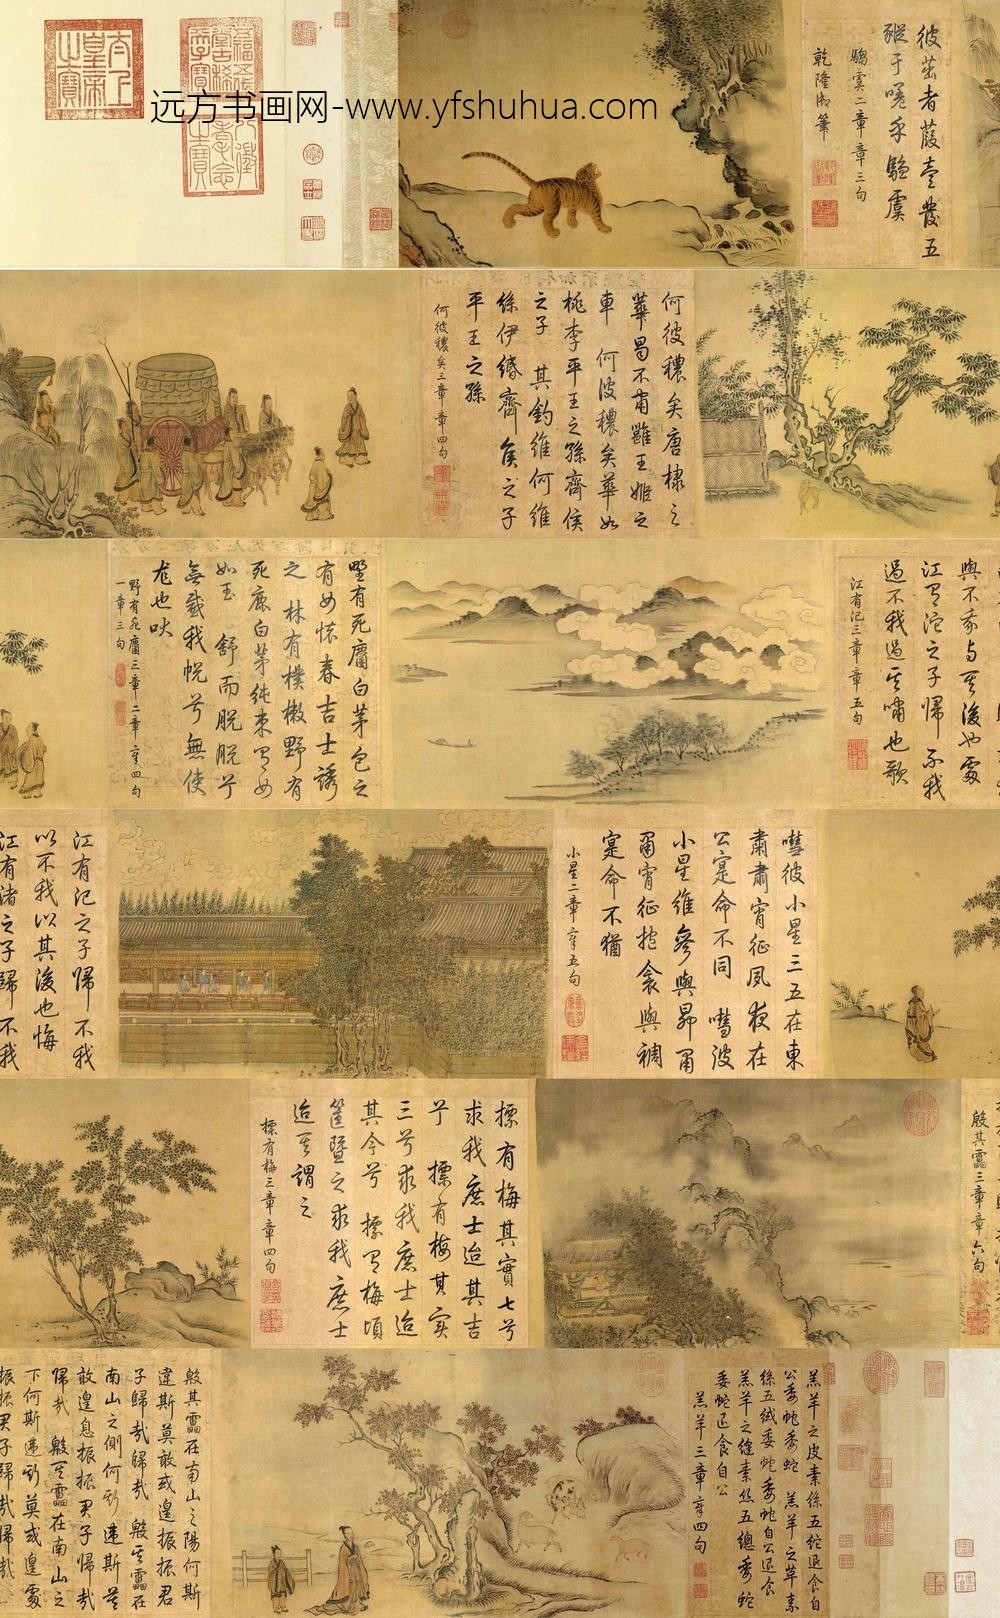 太上皇帝之寶
远方书画网-www.yfshuhua.com
彼茁者葭壹發五
豵于嗟乎騶虞
騶虞二章章三句
乾隆御筆
何彼穠矣唐棣之
華曷不肅雝王姬之
車 何彼穠矣華如
桃李平王之孫齊侯
之子 其釣維何維
絲伊緡齊侯之子
平王之孫
何彼穠矣三章章四句
與不我與其後也處
江有沱之子歸不我
過不我過其嘯也歌
江有汜三章章五句
野有死麕白茅包之
有女懷春吉士誘
之 林有樸樕野有
死鹿白茅純束有女
如玉 舒而脫脫兮
無感我帨兮無使
尨也吠
野有死麕三章二章章四句
一章三句
嘒彼小星三五在東
肅肅宵征夙夜在
公寔命不同 嘒彼
小星維參與昴肅
肅宵征抱衾與裯
寔命不猶
小星二章章五句
江有汜之子歸不我
以不我以其後也悔
江有渚之子歸不我
殷其靁三章章六句
摽有梅其實七兮
求我庶士迨其吉
兮 摽有梅其實
三兮求我庶士迨
其今兮 摽有梅頃
筐塈之求我庶士
迨其謂之
摽有梅三章章四句
羔羊之皮素絲五紽退食自
公委蛇委蛇 羔羊之革素
絲五緎委蛇委蛇自公退食
羔羊之縫素絲五總委蛇
委蛇退食自公
羔羊三章章四句
殷其靁在南山之陽何斯
違斯莫敢或遑振振君
子歸哉歸哉 殷其靁在
南山之側何斯違斯莫
敢遑息振振君子歸哉
歸哉 殷其靁在南山之
下何斯違斯莫或遑處
振振君子歸哉歸哉